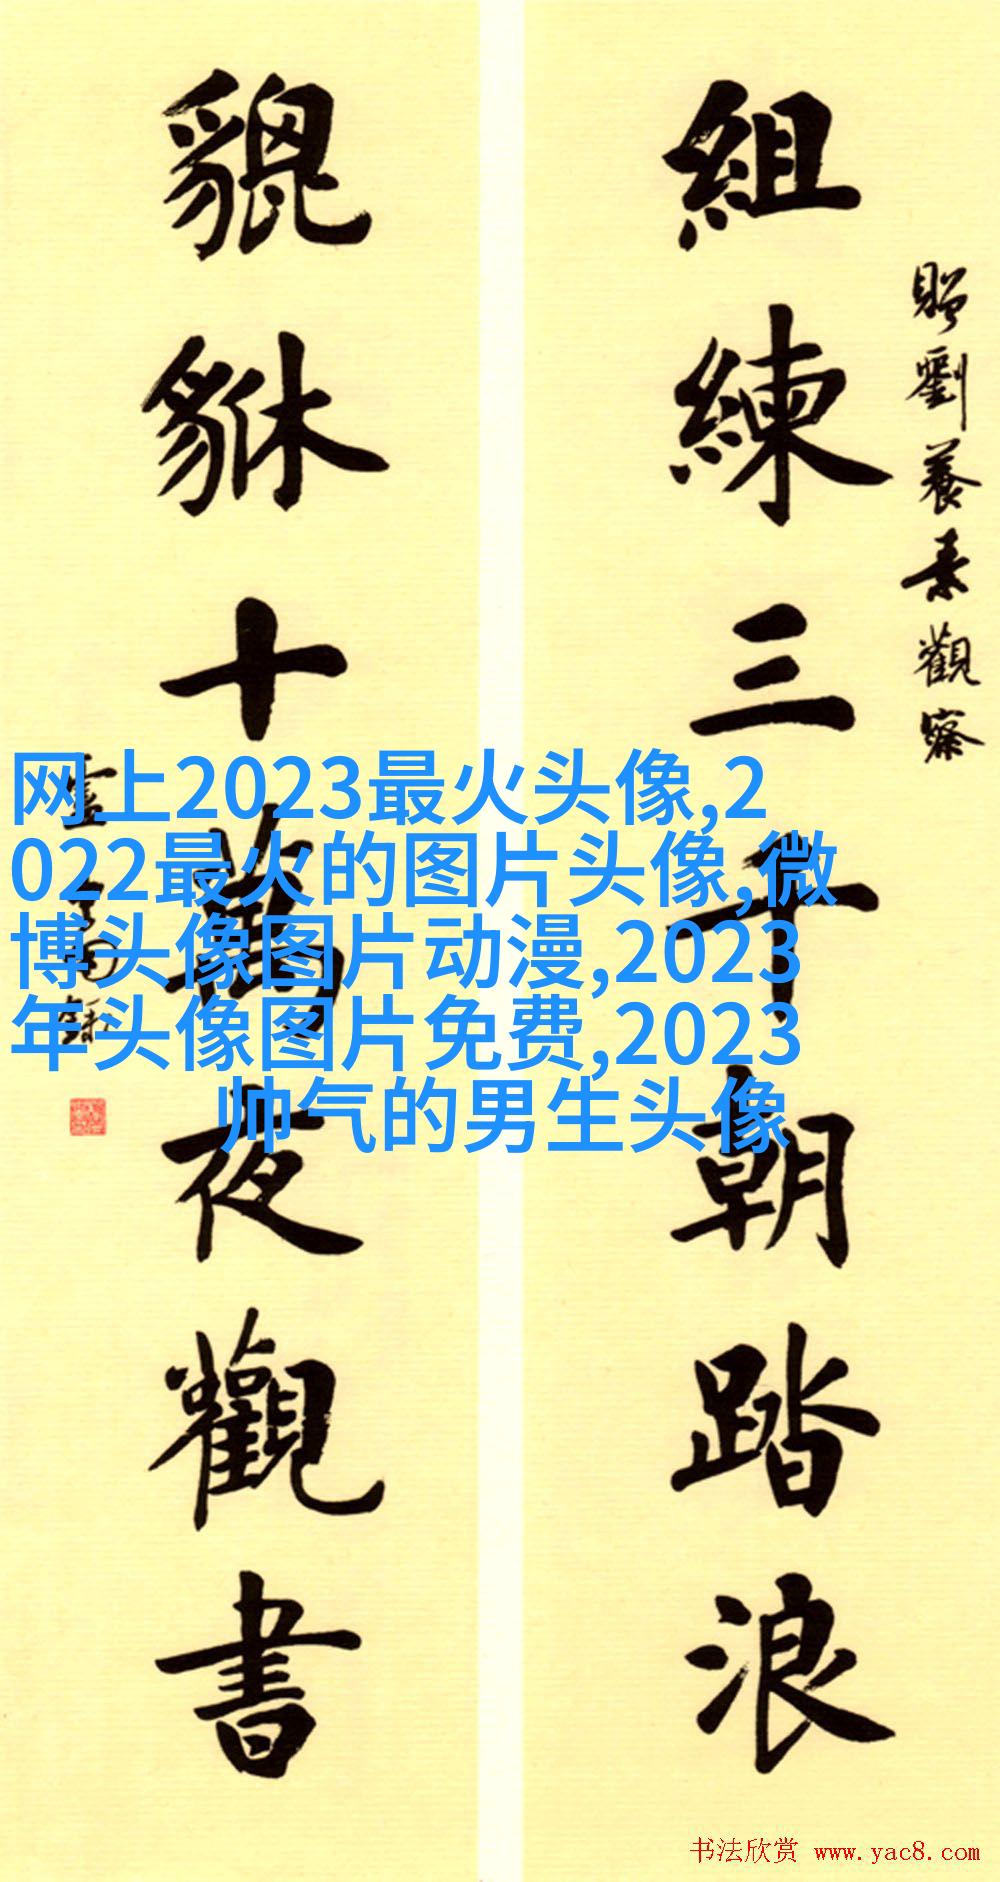 贈劉養素觀察
組練三千朝踏浪
貔貅十萬夜觀書
网上2023最火头像,2
022最火的图片头像,微
博头像图片动漫,2023
年头像图片免费,2023
帅气的男生头像
书法欣赏 www.yac8.com